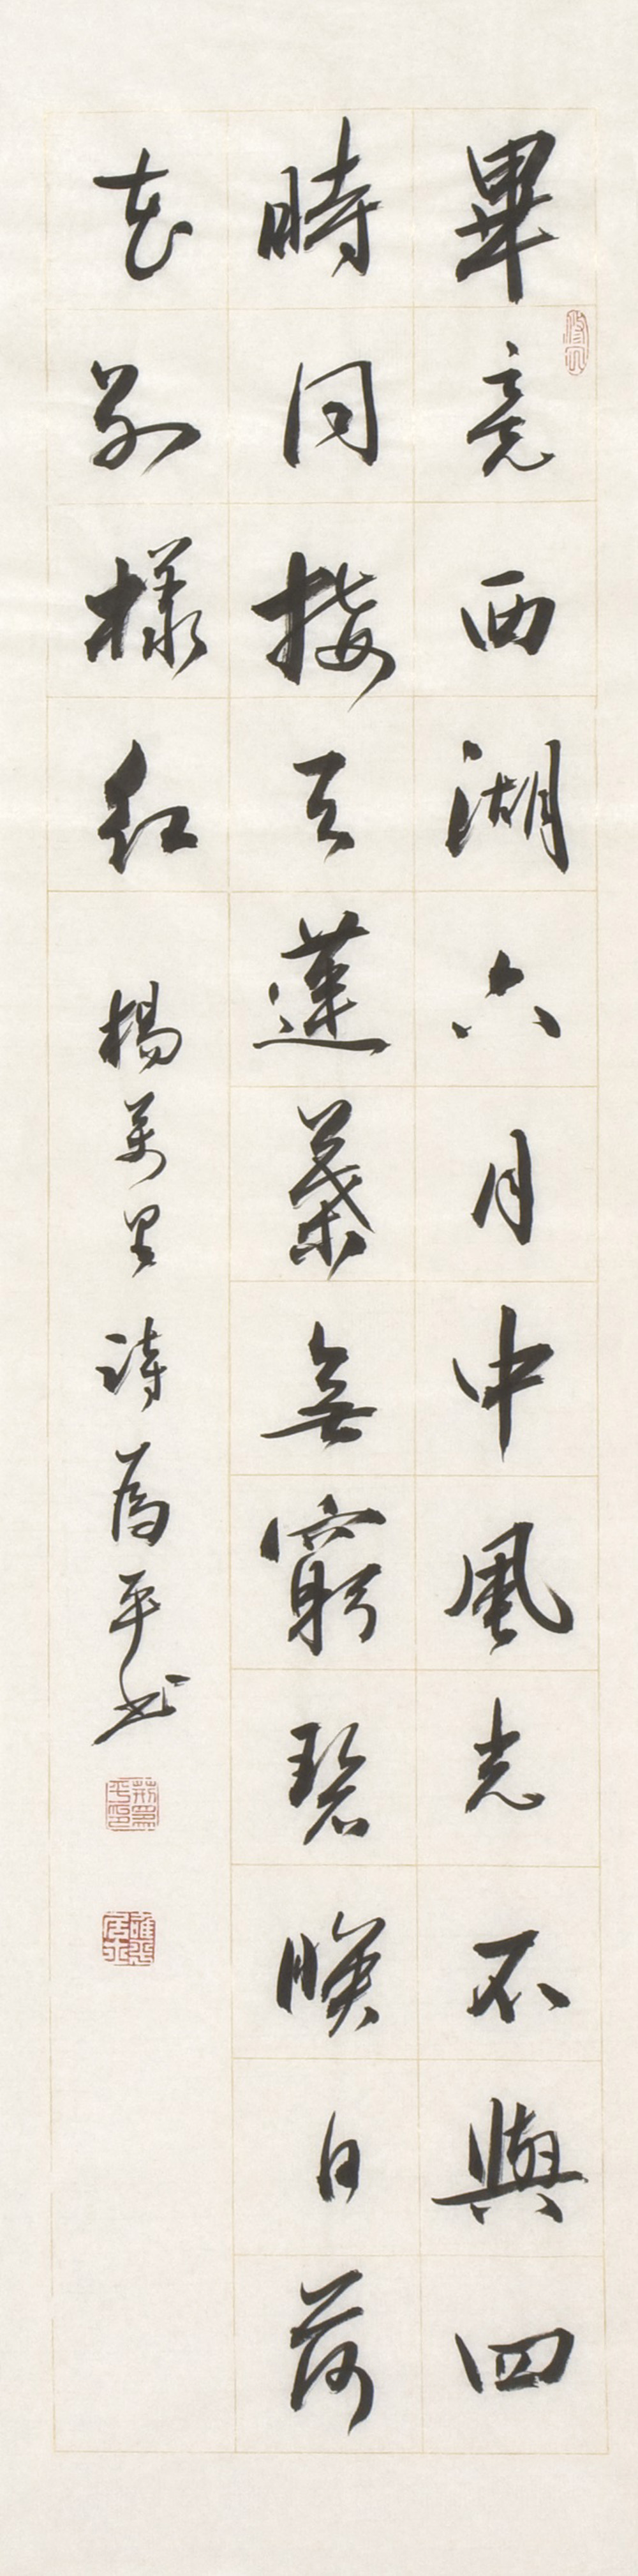 畢竟西湖六月中風光不與四
時同接天蓮葉無窮碧暎日荷
花別樣紅 楊萬里詩為平書